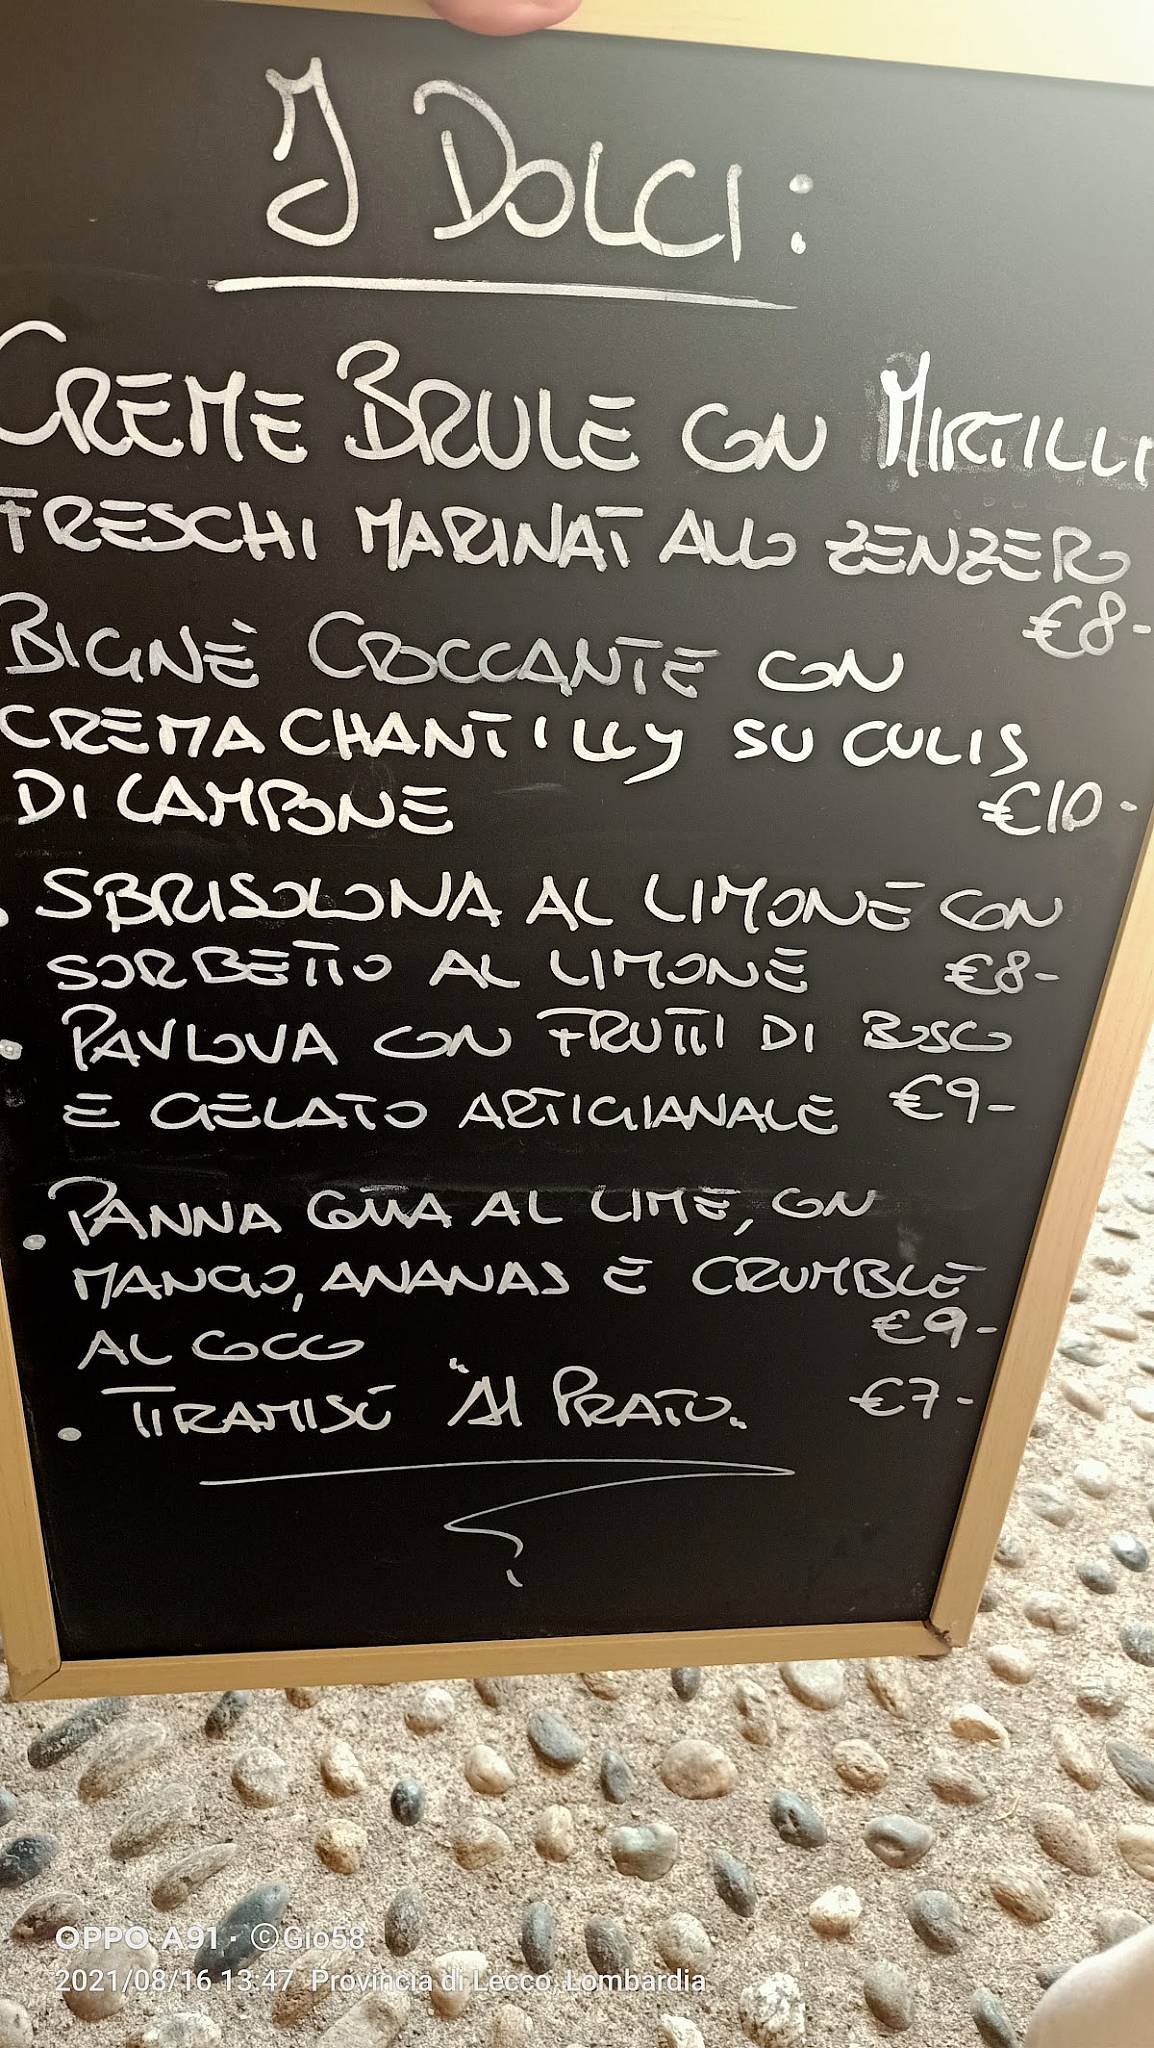 I DOLCI:
CREME BRULE CON MIRTILLI
FRESCHI MARINATI ALLO ZENZERO
€8-
BIGNÈ CROCCANTE CON
CREMA CHANTILLY SU CULIS
DI LAMPONE €10-
. SBRISOLONA AL LIMONE CON
SORBETTO AL LIMONE €8-
. PAVLOVA CON FRUTTI DI BOSCO
E GELATO ARTIGIANALE €9-
. PANNA COTTA AL LIME, CON
MANGO, ANANAS E CRUMBLE
AL COCCO €9-
. TIRAMISÙ "AI PRATO" €7-
OPPO A91 · ©Gio58
2021/08/16 13:47 Provincia di Lecco, Lombardia